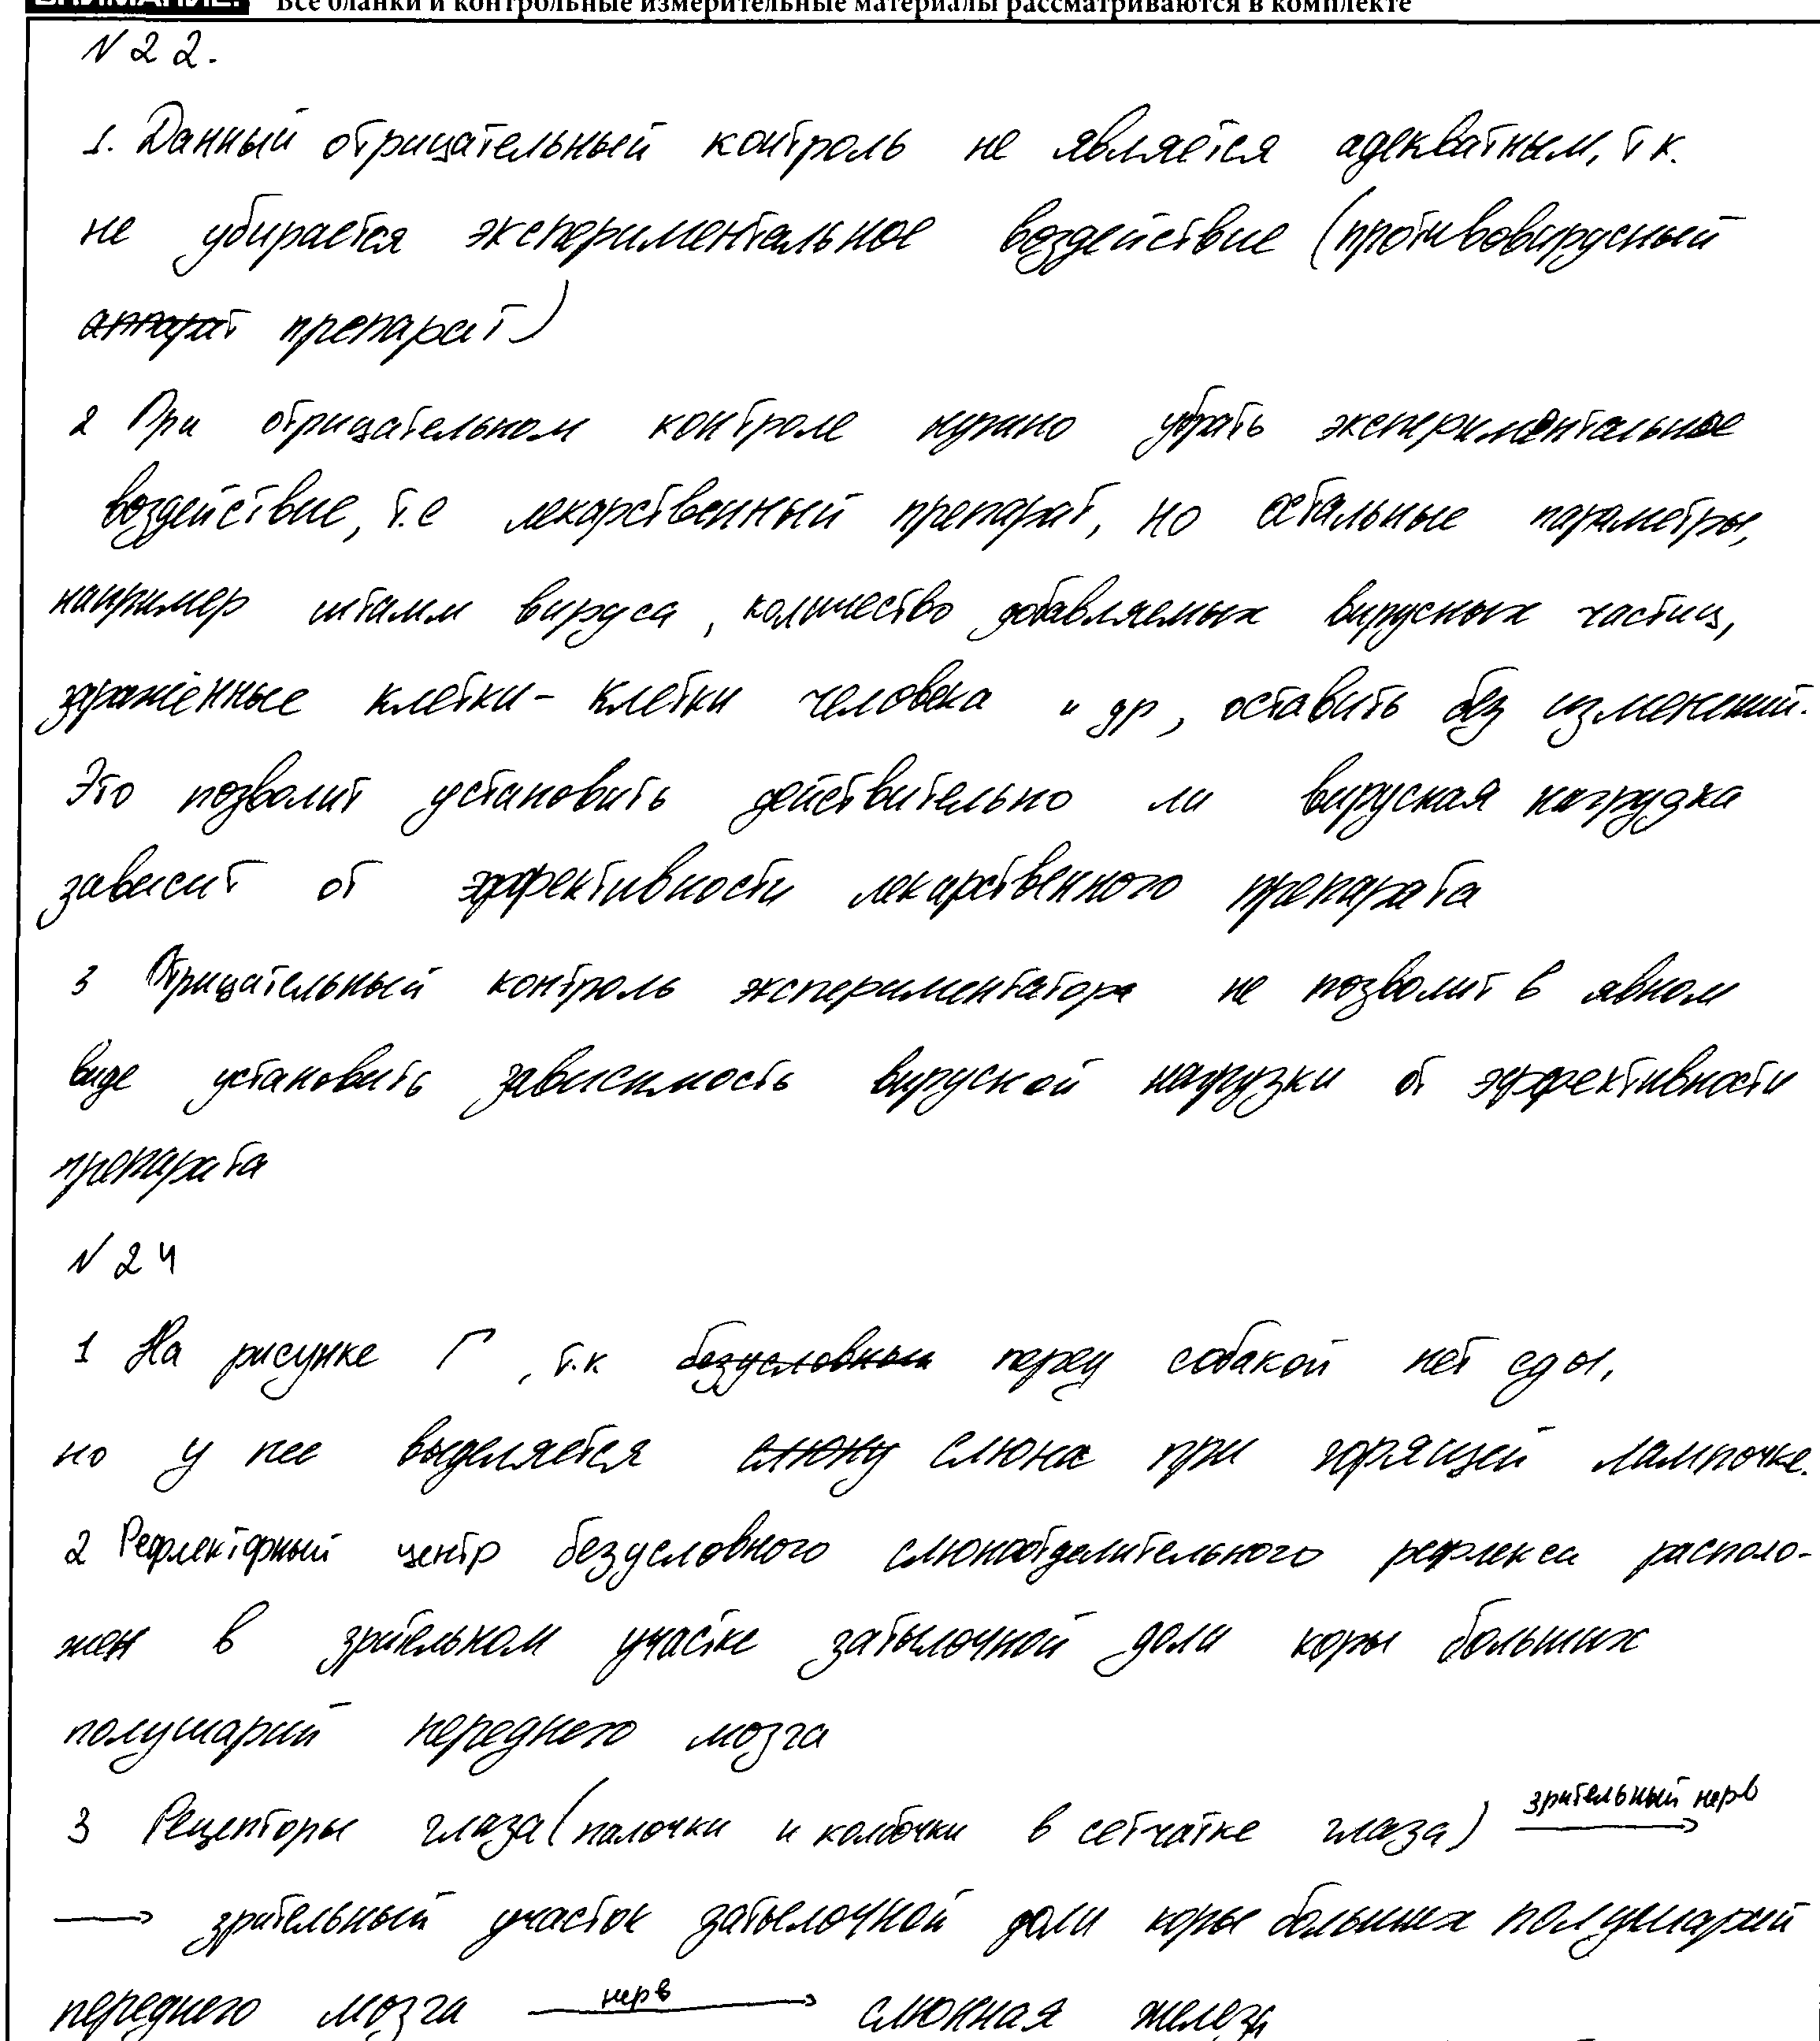 ВНИМАНИЕ! Все бланки и контрольные измерительные материалы рассматриваются в комплекте
N 22.
1. Данный отрицательный контроль не является адекватным, т к.
не убирается экспериментальное воздействие (противовирусный
аппарат препарат)
2 При отрицательном контроле нужно убрать экспериментальное
воздействие, т.е лекарственный препарат, но остальные параметры,
например штамм вируса, количество добавляемых вирусных частиц,
заражённые клетки - клетки человека и др, оставить без изменений.
Это позволит установить действительно ли вируская нагрузка
зависит от эффективности лекарственного препарата
3 Отрицательный контроль экспериментатора не позволит в явном
виде установить зависимость вируской нагрузки от эффективности
препарата
N 24
1 На рисунке Г, т.к безусловный перед собакой нет еды,
но у нее выделяется слюну слюна при горящей лампочке.
2 Рефлекторный центр безусловного слюноотделительного рефлекса располо-
жен в зрительном участке затылочной доли коры больших
полушарий переднего мозга
3 Рецепторы глаза (палочки и колбочки в сетчатке глаза) зрительный нерв →
→ зрительный участок затылочной доли коры больших полушарий
переднего мозга нерв → слюнная железа